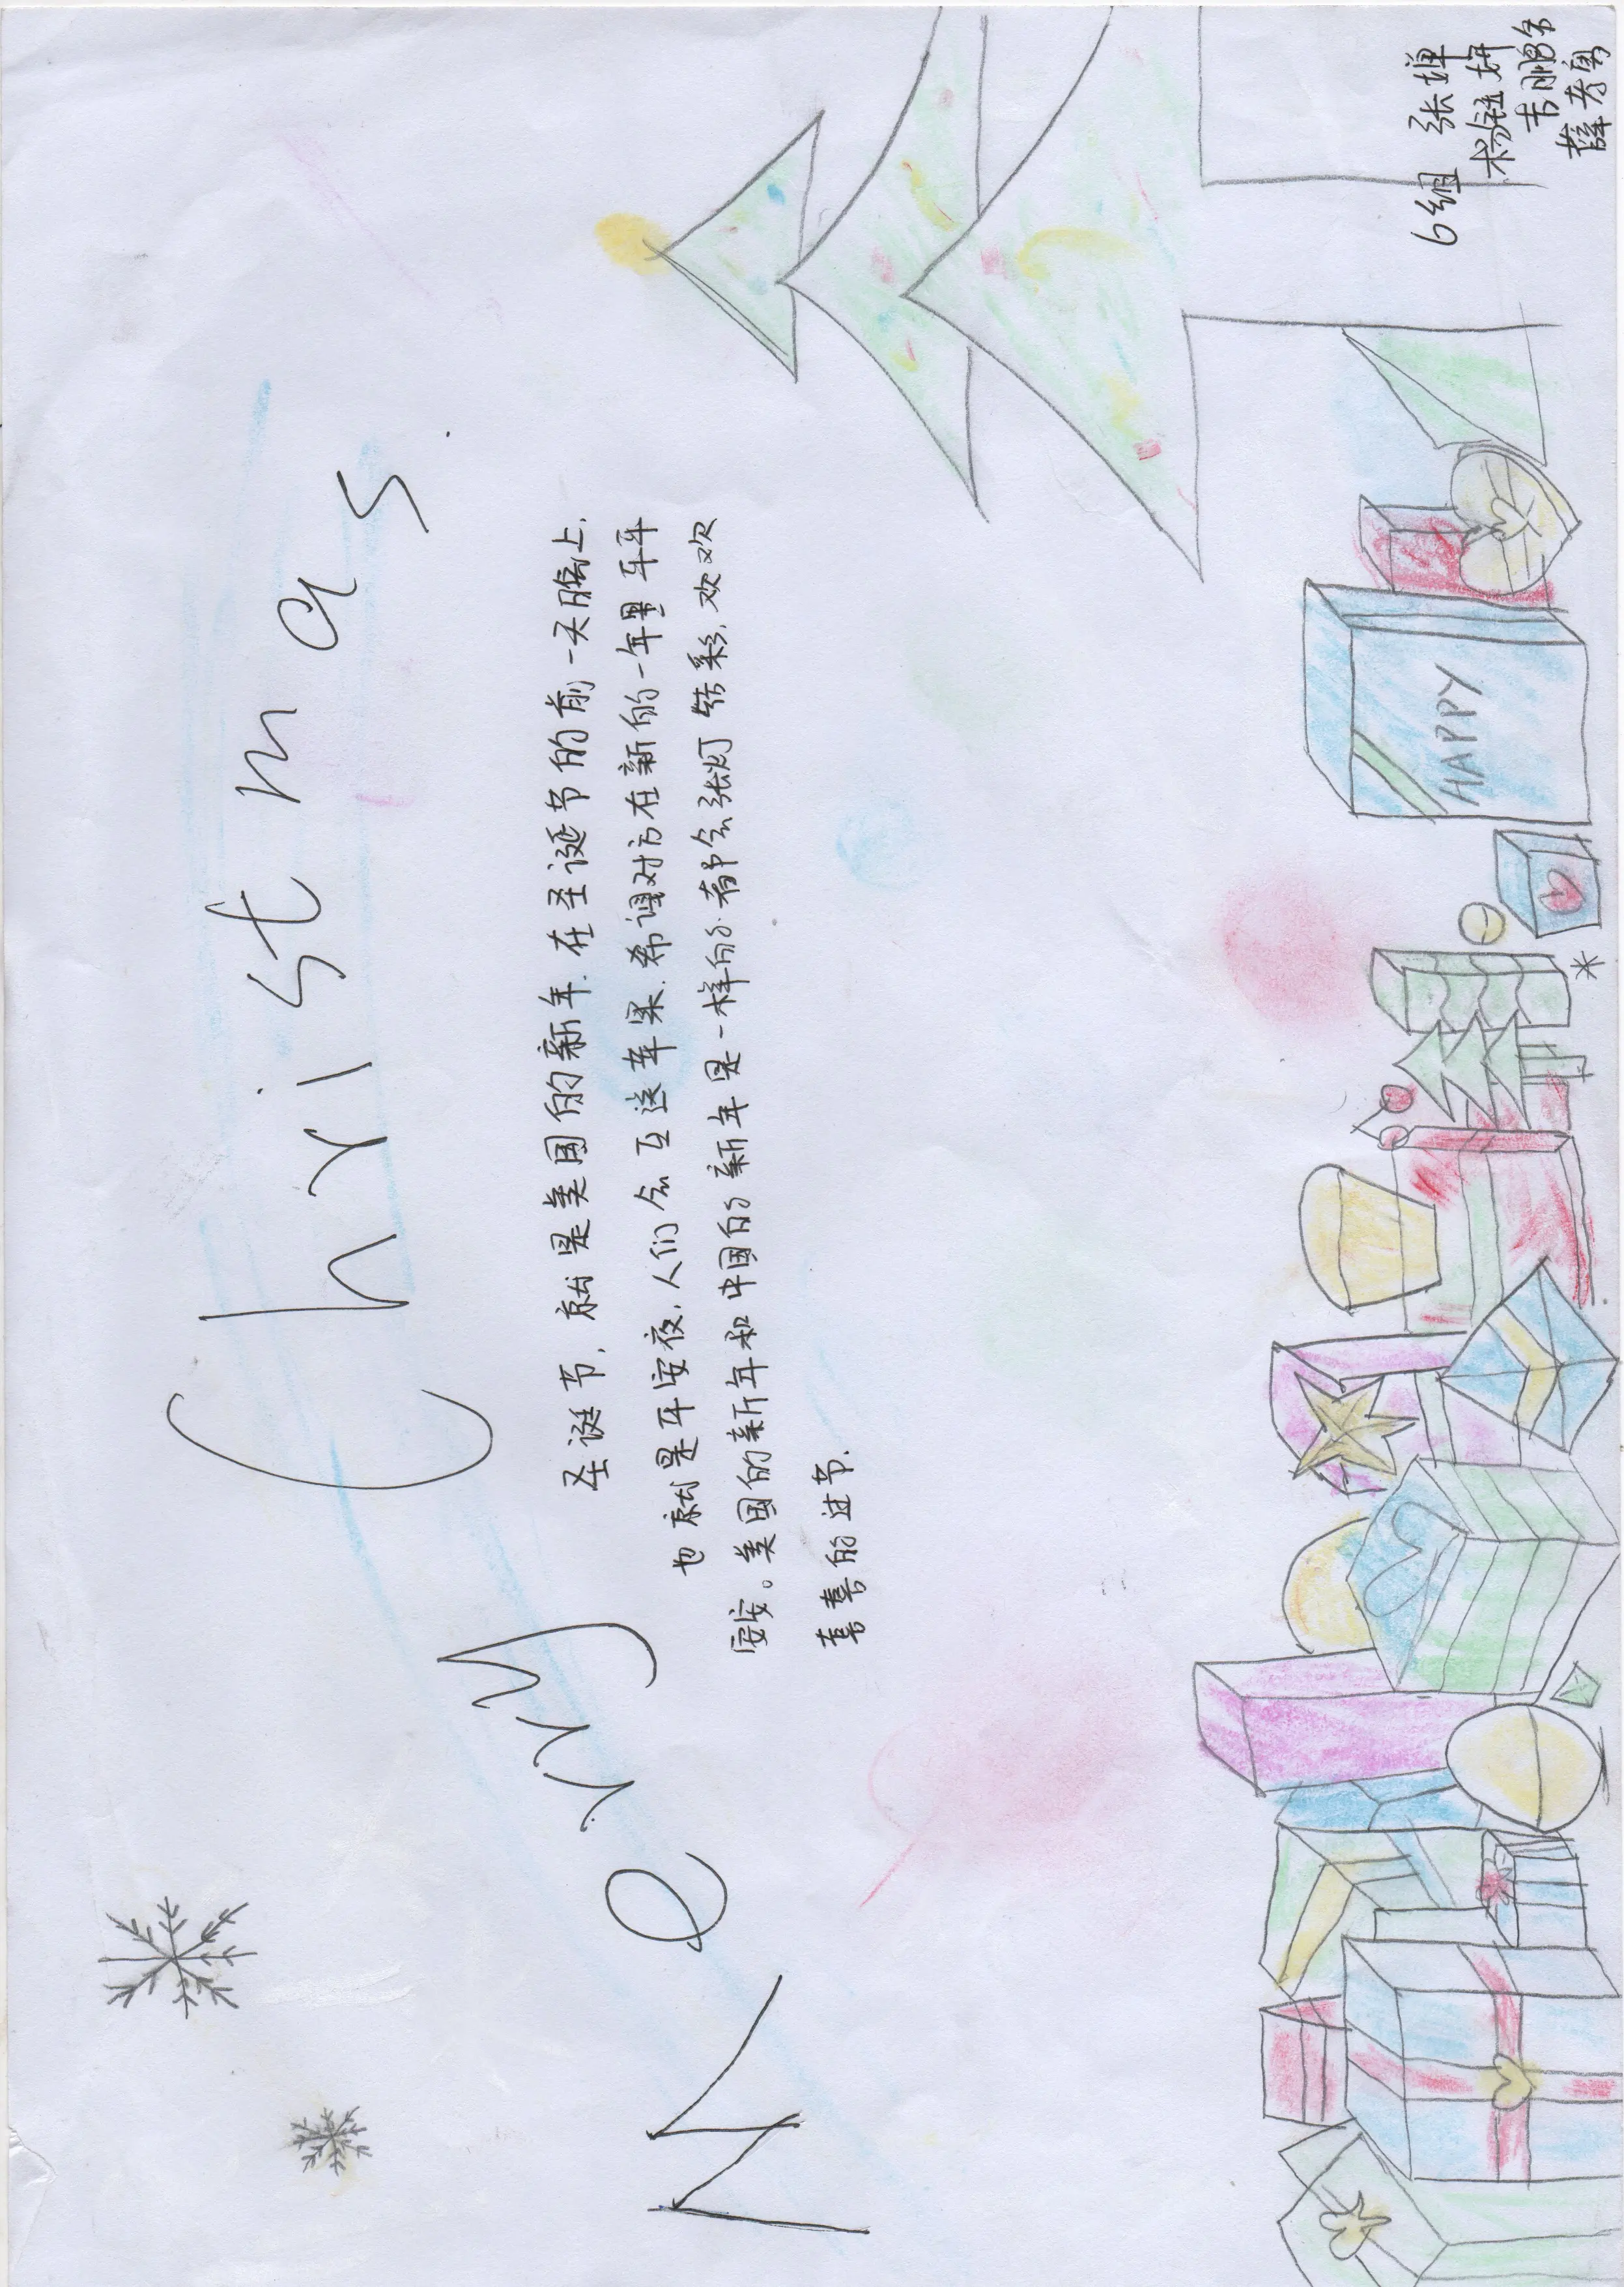 Merry Christmas
圣诞节，就是美国的新年.在圣诞节的前一天晚上，
也就是平安夜，人们会互送苹果.希望对方在新的一年里平平
安安。美国的新年和中国的新年是一样的.都会张灯结彩，欢欢
喜喜的过节.
HAPPY
6组 张婵